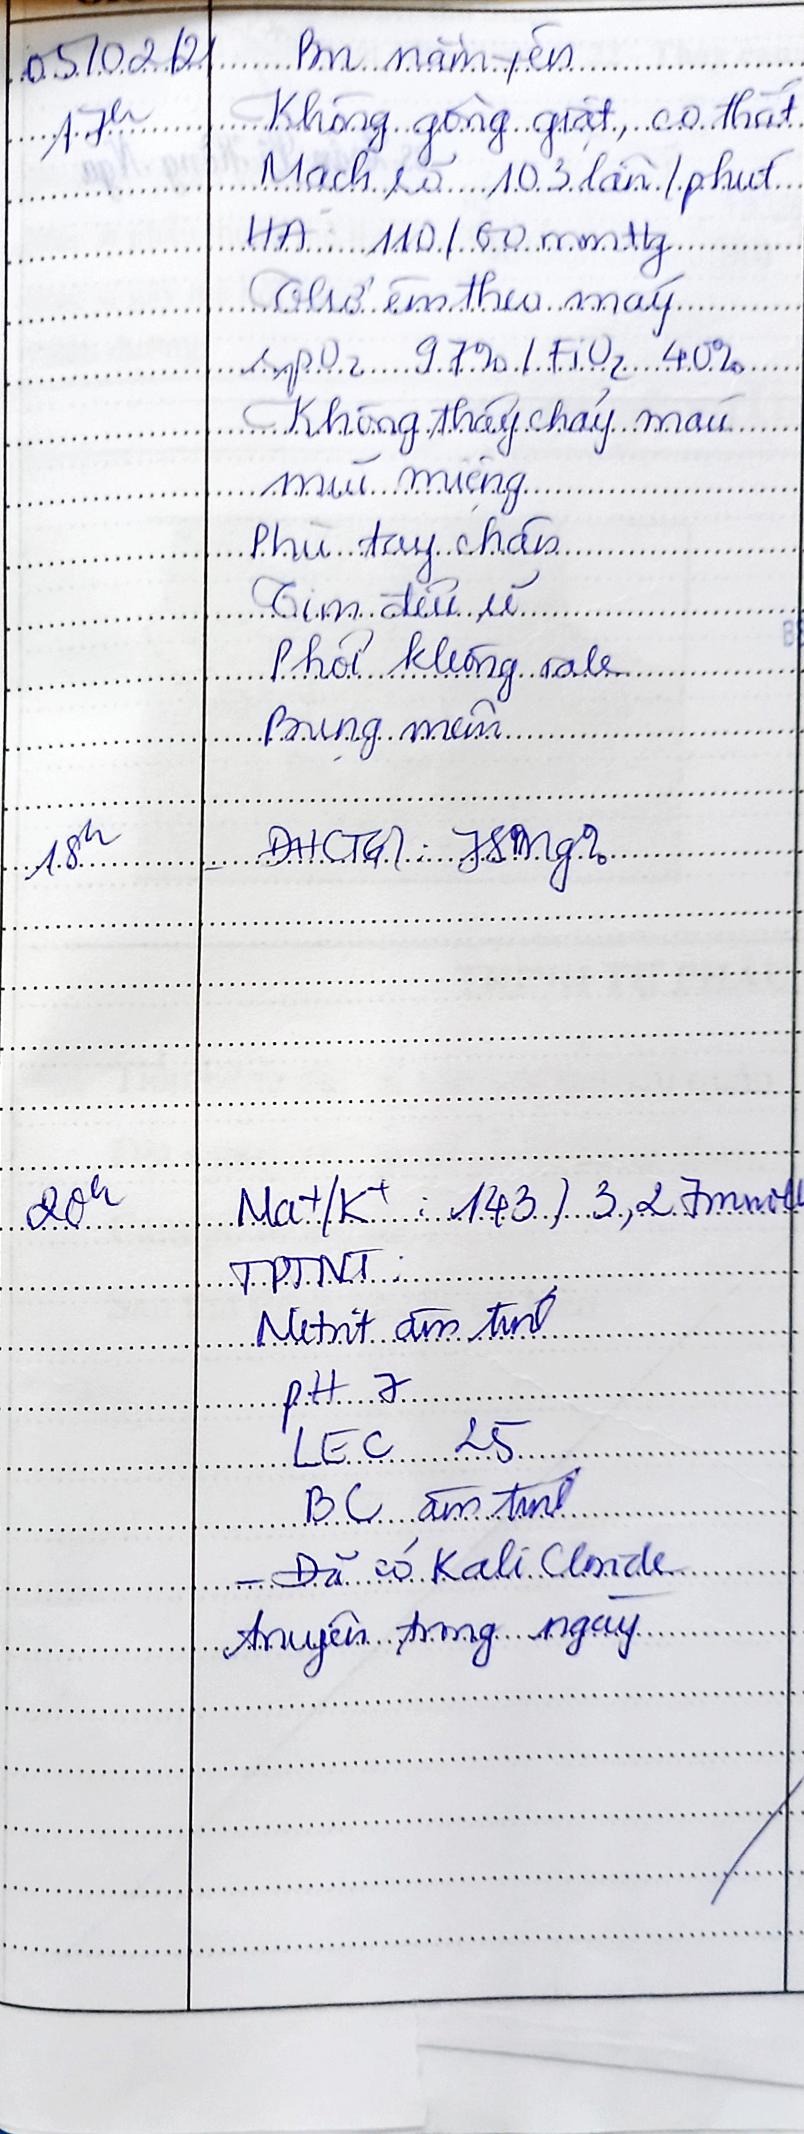 05/02/21 Bn nằm yên
17h Không gồng giật, co thắt
Mạch rõ 103 lần/phút
HA 110/60 mmHg
Thở êm theo máy
SpO2 97% / FiO2 40%
Không thấy chảy máu
mũi miệng
Phù tay chân
Tim đều rõ
Phổi không rale
Bụng mềm
18h - ĐHCTG: 78mg%
20h Na+/K+ : 143 / 3,27mmol/l
TPTNT:
Nitrit âm tính
pH 7
LEC 25
BC âm tính
- Đã có Kali Cloride
truyền trong ngày